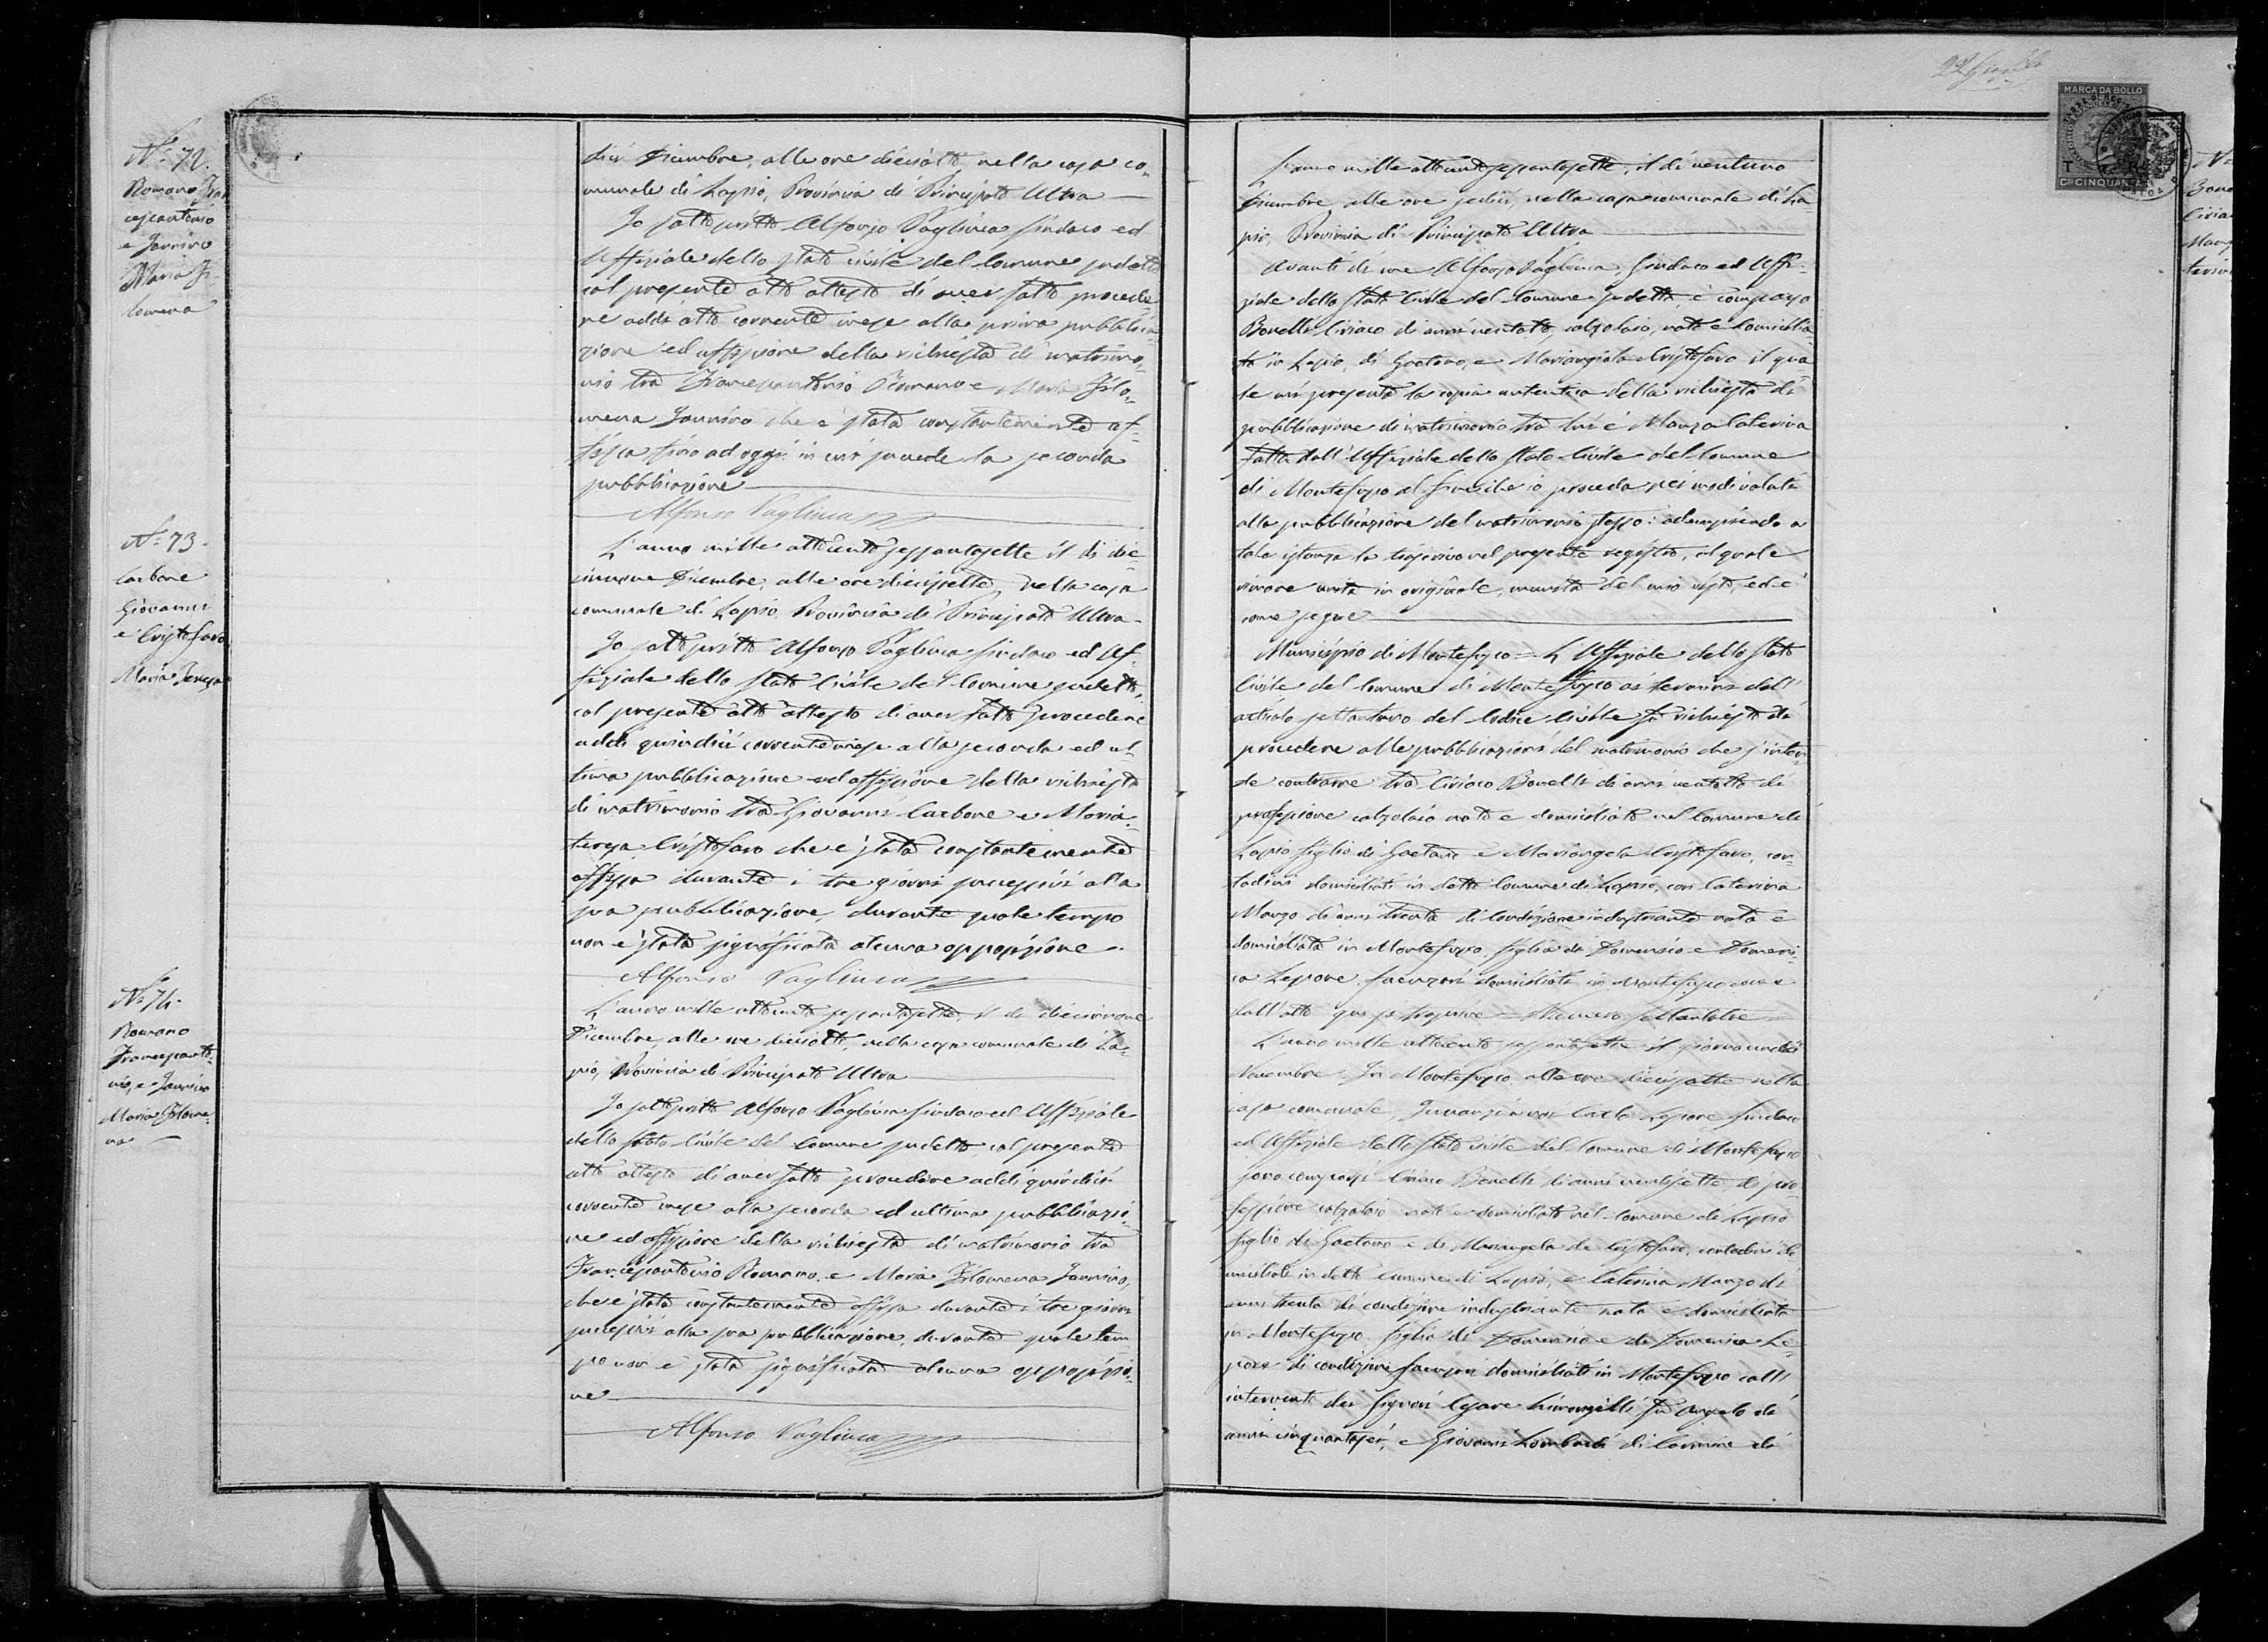 N. 72.
Romano Fran
cescantonio
e Iannino
Maria Fi-
lomena
dici Dicembre, alle ore dieciotto nella casa co-
munale di Lapio, Provincia di Principato Ultra
Io sottoscritto Alfonso Vagliuca Sindaco ed
Uffiziale dello stato civile del Comune sudetto
col presente atto attesto di aver fatto procede
re addì otto corrente mese alla prima pubblica
zione ed affissione della richiesta di matrimo-
nio tra Francescantonio Romano e Maria Filo-
mena Iannino che è stata constantemente af-
fissa fino ad oggi in cui procede la seconda
pubblicazione
Alfonso Vagliuca
N. 73.
Carbone
Giovanni
e Cristofaro
Maria Teresa
L'anno mille ottocento sessantasette il dì die-
cinnove Dicembre, alle ore diecisette, nella casa
comunale di Lapio Provincia di Principato Ultra
Io sottoscritto Alfonso Vagliuca Sindaco ed Uf-
fiziale dello stato Civile del Comune sudetto,
col presente atto attesto di aver fatto procedere
addì quindici corrente mese alla seconda ed ul-
tima pubblicazione ed affissione della richiesta
di matrimonio tra Giovanni Carbone e Maria
teresa Cristofaro che è stata constantemente
affissa durante i tre giorni successivi alla
sua pubblicazione, durante quale tempo
non è stata significata alcuna opposizione
Alfonso Vagliuca
N. 74.
Romano
Francescanto-
nio, e Iannino
Maria Filome-
na
L'anno mille ottocento sessantasette, il dì diecinnove
Dicembre, alle ore dieciotto, nella casa comunale di La-
pio, Provincia di Principato Ultra
Io sottoscritto Alfonso Vagliuca Sindaco ed Uffiziale
dello stato Civile del Comune sudetto, col presente
atto attesto di aver fatto procedere addì quindici
corrente mese alla seconda ed ultima pubblicazio-
ne ed affissione della richiesta di matrimonio tra
Francescantonio Romano, e Maria Filomena Iannino,
che è stata constantemente affissa durante i tre giorni
successivi alla sua pubblicazione, durante quale tem
po non è stata significata alcuna opposizio-
ne
Alfonso Vagliuca
MARCA DA BOLLO
C. CINQUANTA
L'anno mille ottocento sessantasette, il dì ventuno
Dicembre alle ore sedici, nella casa comunale di La-
pio, Provincia di Principato Ultra
Avanti di me Alfonso Vagliuca, Sindaco ed Uffi-
ziale dello Stato Civile del Comune sudetto, è comparso
Bonelli Ciriaco di anni ventotto, calzolaio, nato e domicilia-
to in Lapio, di Gaetano, e Mariangiola Cristofaro il qua-
le mi presenta la copia autentica della richiesta di
pubblicazione di matrimonio tra lui e Manzo Caterina
fatta dall'Uffiziale dello Stato Civile del Comune
di Montefusco al fine che io proceda pei modi voluti
alla pubblicazione del matrimonio stesso: adempiendo a
tale istanza la trascrivo nel presente registro, al quale
rimane unita in originale, munita del mio visto, ed è
come segue
Municipio di Montefusco = L'Uffiziale dello Stato
Civile del Comune di Montefusco ai termini dell'
articolo settantuno del Codice Civile fa richiesta di
procedere alle pubblicazioni del matrimonio che s'inten-
de contrarre tra Ciriaco Bonelli di anni ventotto di
professione calzolaio nato e domiciliato nel Comune di
Lapio figlio di Gaetano e Mariangela Cristofaro, con-
tadini domiciliati in detto Comune di Lapio, con Caterina
Manzo di anni trenta di condizione industriante nata e
domiciliata in Montefusco, figlia di Domenico e Domeni-
ca Lepore domiciliati in Montefusco come
dall'atto qui si trascrive = Numero settantatre
L'anno mille ottocento sessantasette il giorno undici
Novembre In Montefusco alle ore diecisette nella
casa comunale, Innanzi a noi Carlo Lepore Sindaco
ed Uffiziale dello Stato civile del Comune di Montefusco
sono comparsi Ciriaco Bonelli di anni ventisette, di pro
fessione calzolaio nato e domiciliato nel Comune di Lapio
figlio di Gaetano e di Mariangela de Cristofaro, contadini do
miciliati in detto Comune di Lapio, e Caterina Manzo di
anni trenta di condizione industriante nata e domiciliata
in Montefusco figlia di Domenico e di Domenica Le-
pore di condizione domiciliati in Montefusco coll'
intervento dei Signori Cesare fu Angelo di
anni cinquantasei, e Giovanni Lombardi di Carmine di
N.
Bone
Ciria
Manz
terin